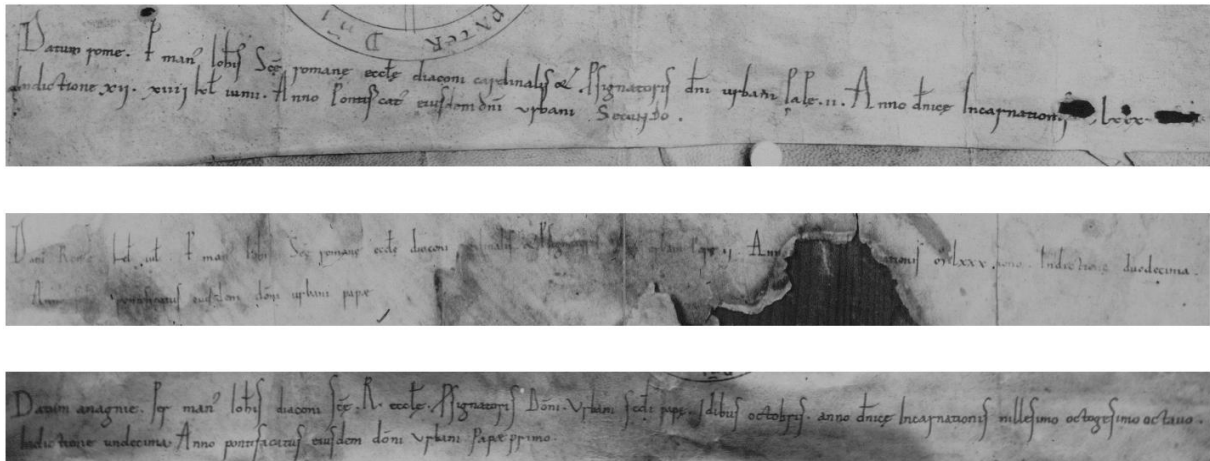 PATER Dñi
Datum rome. P man͛ Ioh̄is Scę romanę ecclę diaconi cardinalis &. Psignatoris dñi urbani Papę. ii. Anno dñicę Incarnationis lxxx
Indictione xij. xiiij kl̄ iunii. Anno Pontificat͛ eiusdem dñi Urbani Secundo.
Dat Rome kl̄ iul. P man Ioh̄is Scę romanę ecclę diaconi & P urbani Papę ii. Ann ationis lxxx nono. Indictione duodecima.
Anno pontificatus eiusdem dōni urbani papę
Datum anagnię. Per man͛ Ioh̄is diaconi scę. R. ecclę. Psignatoris Dōni. Urbani scđi papę. Idibus octobris. anno dñicę Incarnationis millesimo octogesimo octauo.
Indictione undecima. Anno pontificatus eiusdem dōni Urbani Papæ primo.